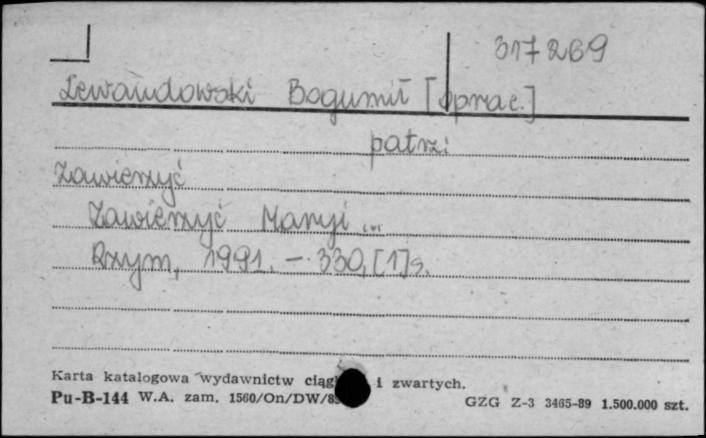 317269
Lewandowski Bogumił [oprac.]
patrz:
Zawierzyć
Zawierzyć Maryi...
Rzym, 1991. - 330, [1] s.
Karta katalogowa wydawnictw i zwartych.
Pu-B-144 W.A. zam. 1560/On/DW/8
GZG Z-3 3465-89 1.500.000 szt.